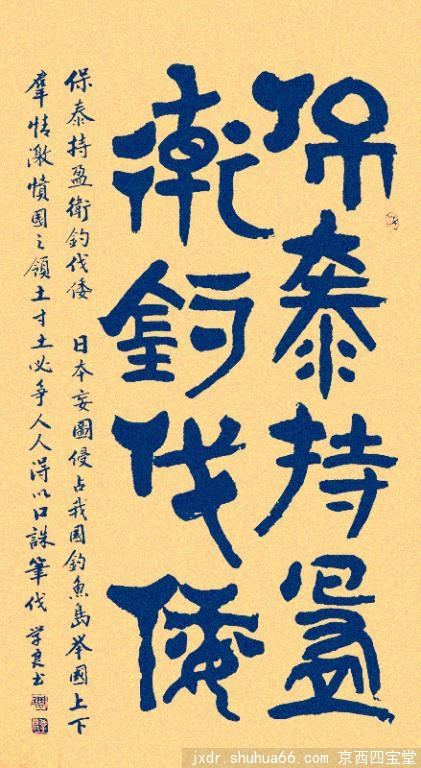 保泰持盈
衛釣伐倭
保泰持盈衛釣伐倭 日本妄圖侵占我国釣魚島举國上下
羣情激憤國之領土寸土必争人人得以口誅筆伐 学良书
jxdr.shuhua66.com 京西四宝堂